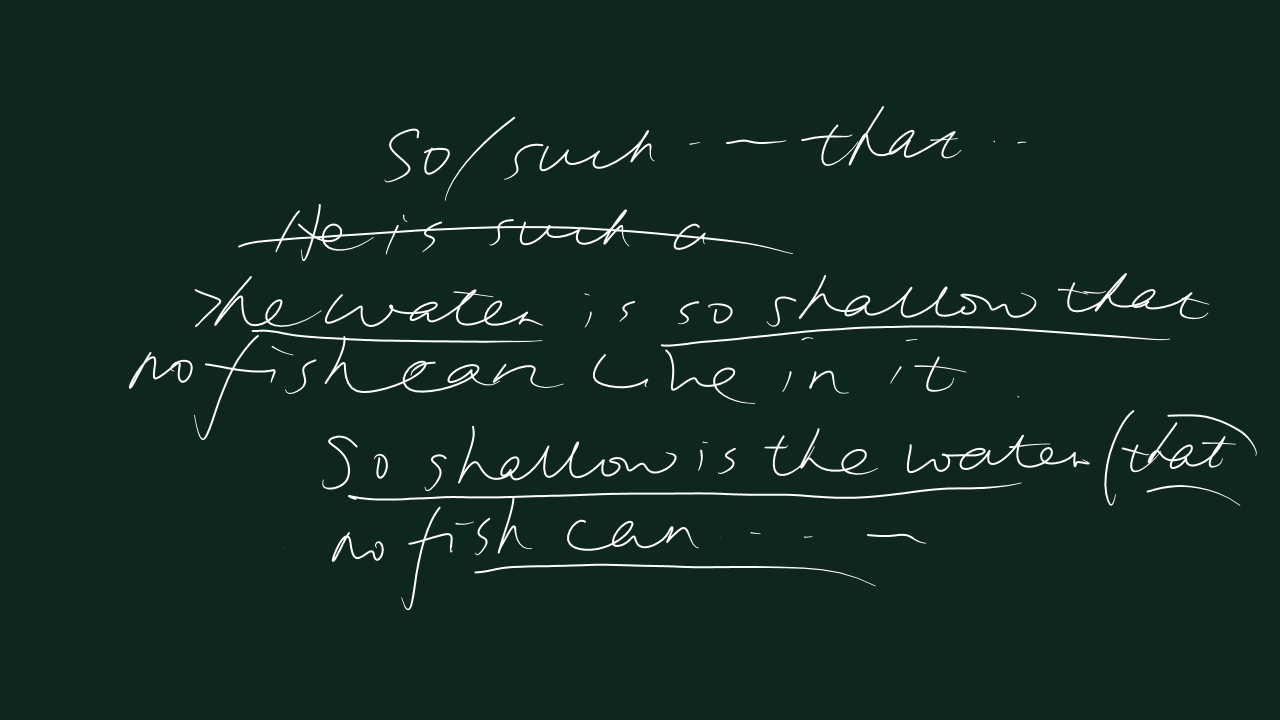 So/such ... that ...
He is such a
The water is so shallow that
no fish can live in it.
So shallow is the water (that
no fish can ....